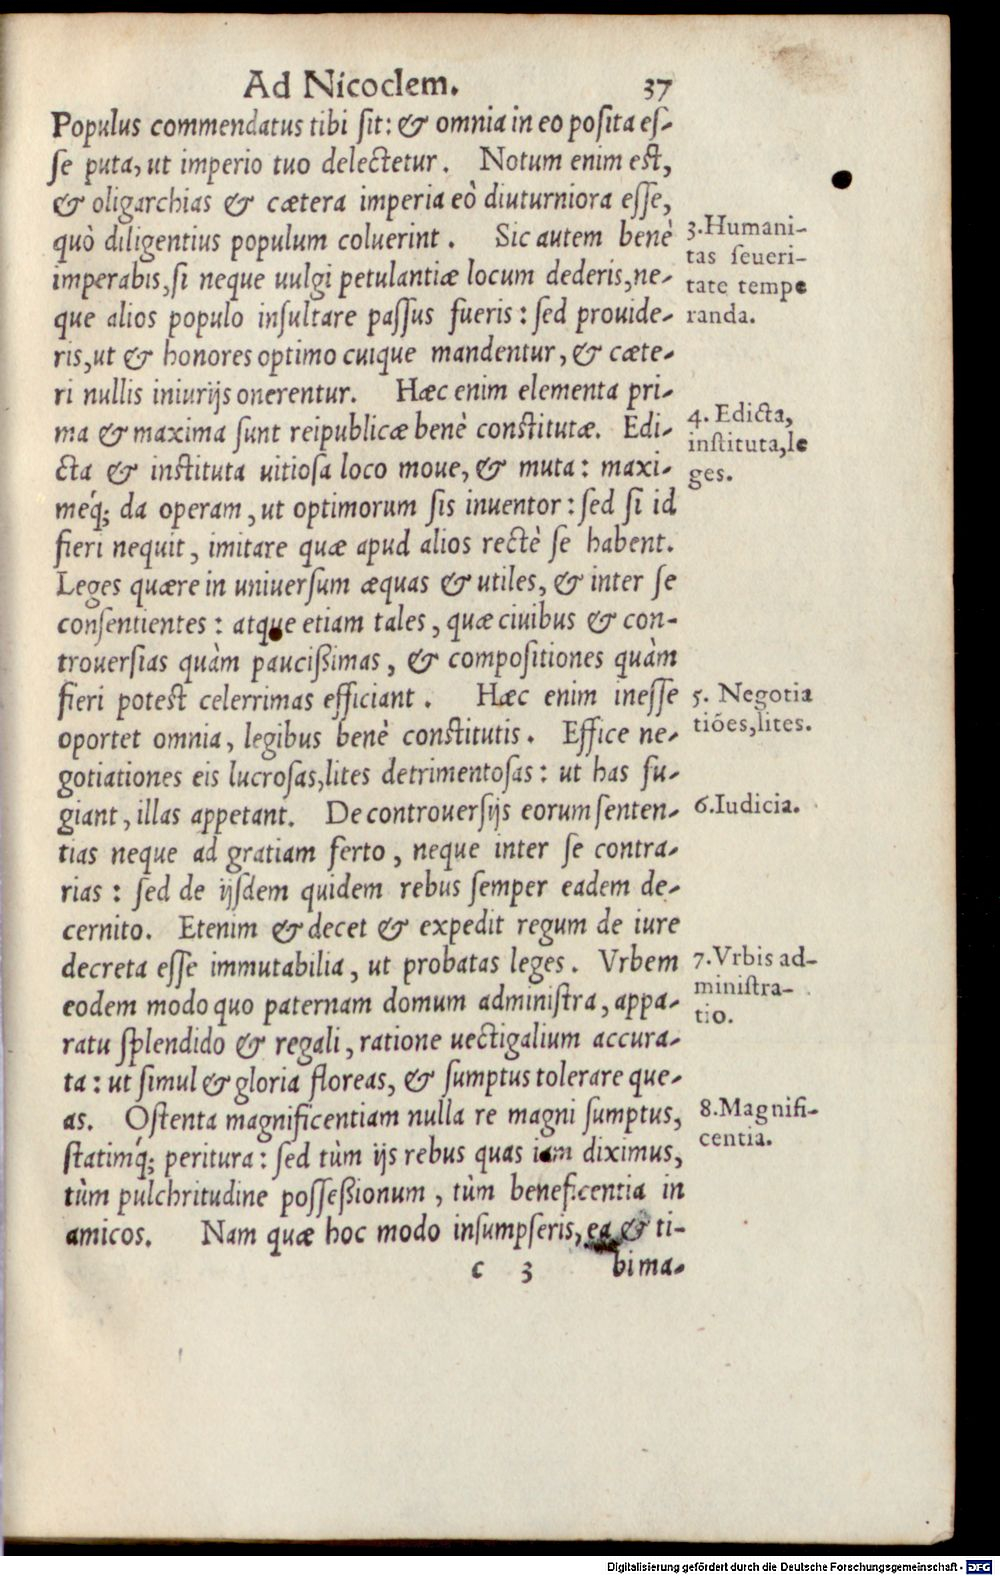 Ad Nicoclem. 37
Populus commendatus tibi ſit: & omnia in eo poſita eſ-
ſe puta, ut imperio tuo delectetur. Notum enim eſt,
& oligarchias & cætera imperia eò diuturniora eſſe,
quò diligentius populum coluerint. Sic autem benè
imperabis, ſi neque uulgi petulantiæ locum dederis, ne-
que alios populo inſultare paſſus fueris: ſed prouide-
ris, ut & honores optimo cuique mandentur, & cæte-
ri nullis iniurijs onerentur. Hæc enim elementa pri-
ma & maxima ſunt reipublicæ benè conſtitutæ. Edi-
cta & inſtituta uitioſa loco moue, & muta: maxi-
méq; da operam, ut optimorum ſis inuentor: ſed ſi id
fieri nequit, imitare quæ apud alios rectè ſe habent.
Leges quære in uniuerſum æquas & utiles, & inter ſe
conſentientes: atque etiam tales, quæ ciuibus & con-
trouerſias quàm pauciſſimas, & compoſitiones quàm
fieri poteſt celerrimas efficiant. Hæc enim ineſſe
oportet omnia, legibus benè conſtitutis. Effice ne-
gotiationes eis lucroſas, lites detrimentoſas: ut has fu-
giant, illas appetant. De controuerſijs eorum ſenten-
tias neque ad gratiam ferto, neque inter ſe contra-
rias: ſed de ijſdem quidem rebus ſemper eadem de-
cernito. Etenim & decet & expedit regum de iure
decreta eſſe immutabilia, ut probatas leges. Vrbem
eodem modo quo paternam domum adminiſtra, appa-
ratu ſplendido & regali, ratione uectigalium accura-
ta: ut ſimul & gloria floreas, & ſumptus tolerare que-
as. Oſtenta magnificentiam nulla re magni ſumptus,
ſtatimq́; peritura: ſed tùm ijs rebus quas iam diximus,
tùm pulchritudine poſſeßionum, tùm beneficentia in
amicos. Nam quæ hoc modo inſumpſeris, ea & ti-
c 3 bi ma-
3. Humani-
tas ſeueri-
tate tempe
randa.
4. Edicta,
inſtituta, le
ges.
5. Negotia
tiões, lites.
6. Iudicia.
7. Vrbis ad-
miniſtra-
tio.
8. Magnifi-
centia.
Digitalisierung gefördert durch die Deutsche Forschungsgemeinschaft - DFG